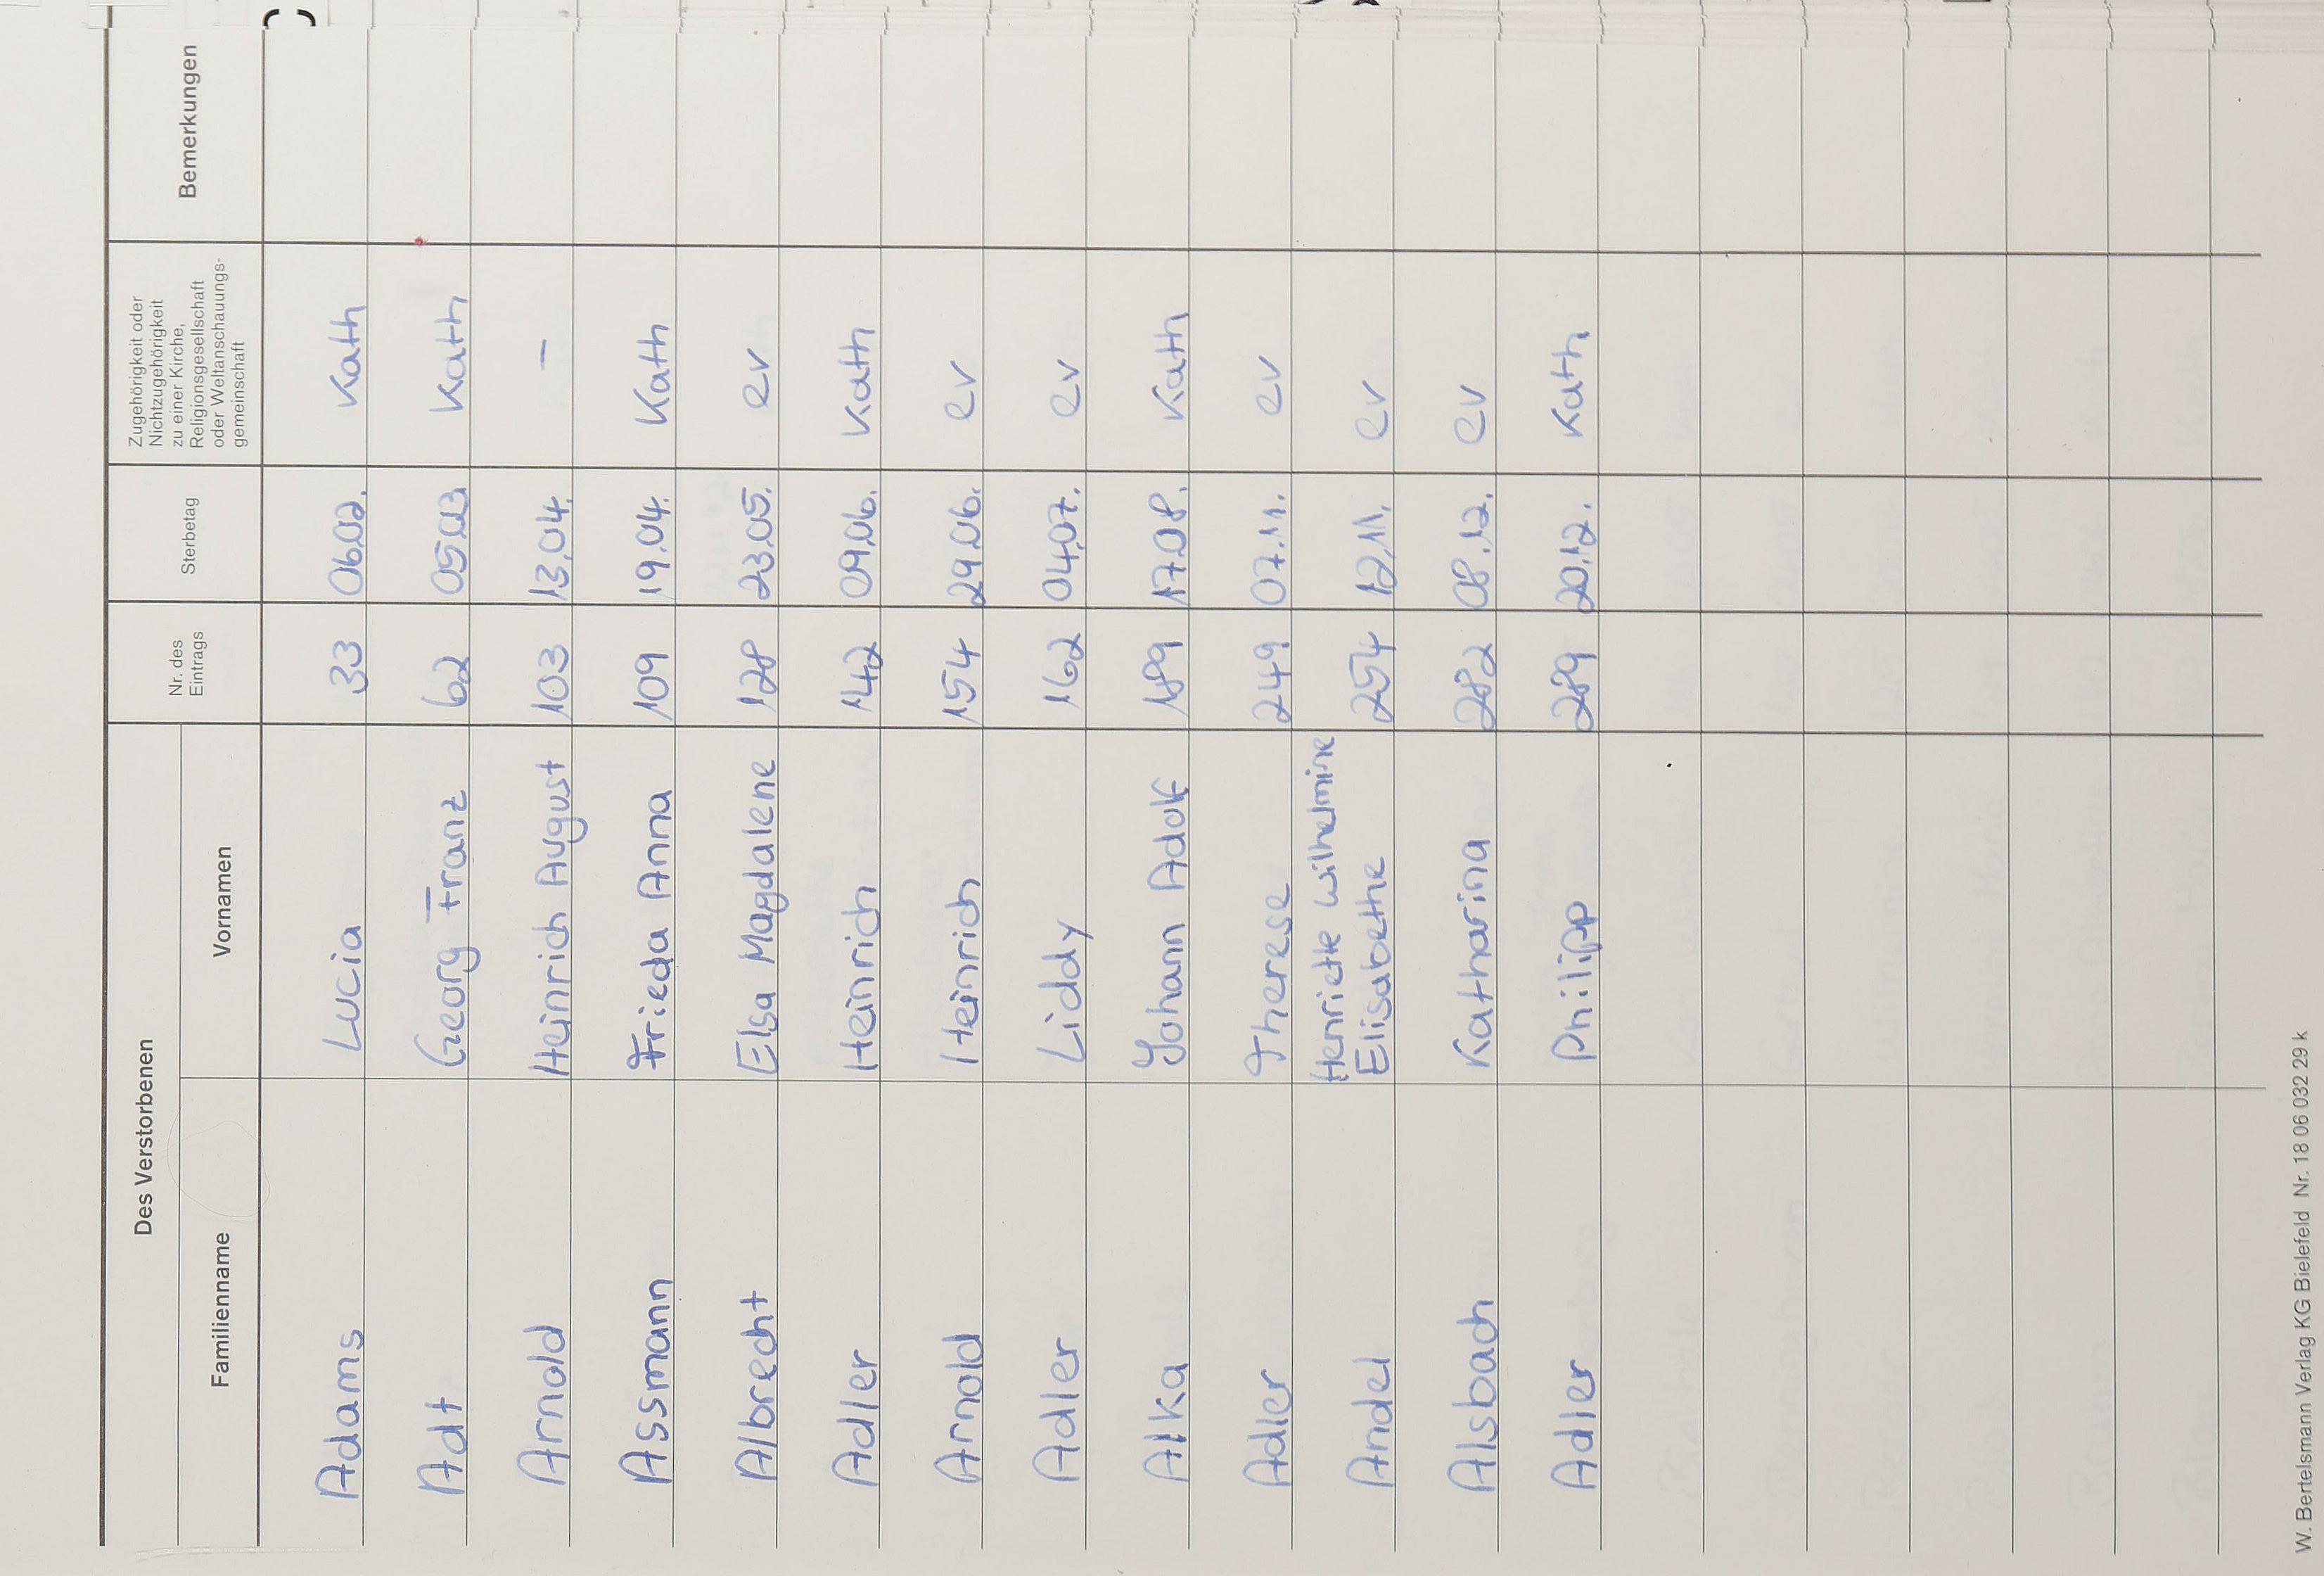 Des Verstorbenen
Familienname Vornamen Nr. des Eintrags Sterbetag Zugehörigkeit oder Nichtzugehörigkeit zu einer Kirche, Religionsgesellschaft oder Weltanschauungs-gemeinschaft Bemerkungen
Adams Lucia 33 06.02. Kath
Adt Georg Franz 62 05.03 Kath
Arnold Heinrich August 103 13.04. –
Assmann Frieda Anna 109 19.04. Kath
Albrecht Elsa Magdalene 128 23.05. ev
Adler Heinrich 142 09.06. Kath
Arnold Heinrich 154 29.06. ev
Adler Liddy 162 04.07. ev
Alka Johann Adolf 189 17.08. Kath
Adler Therese 249 07.11. ev
Henriette Wilhelmine
Andel Elisabethe 254 12.11. ev
Alsbach Katharina 282 08.12. ev
Adler Philipp 289 20.12. Kath
W. Bertelsmann Verlag KG Bielefeld Nr. 18 06 032 29 k